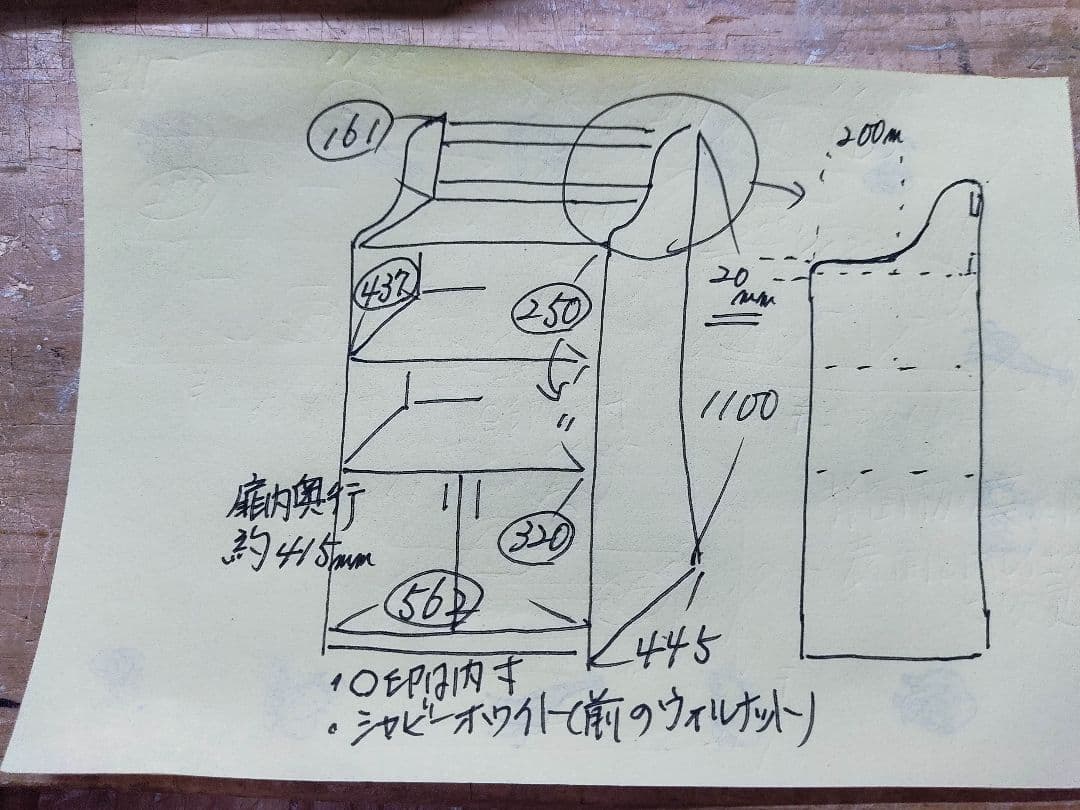 161
200m
437
250
20
mm
1100
〃
扉内奥行
約415mm
320
562
445
・○印は内寸
・シャビーホワイト(前のウォルナット)